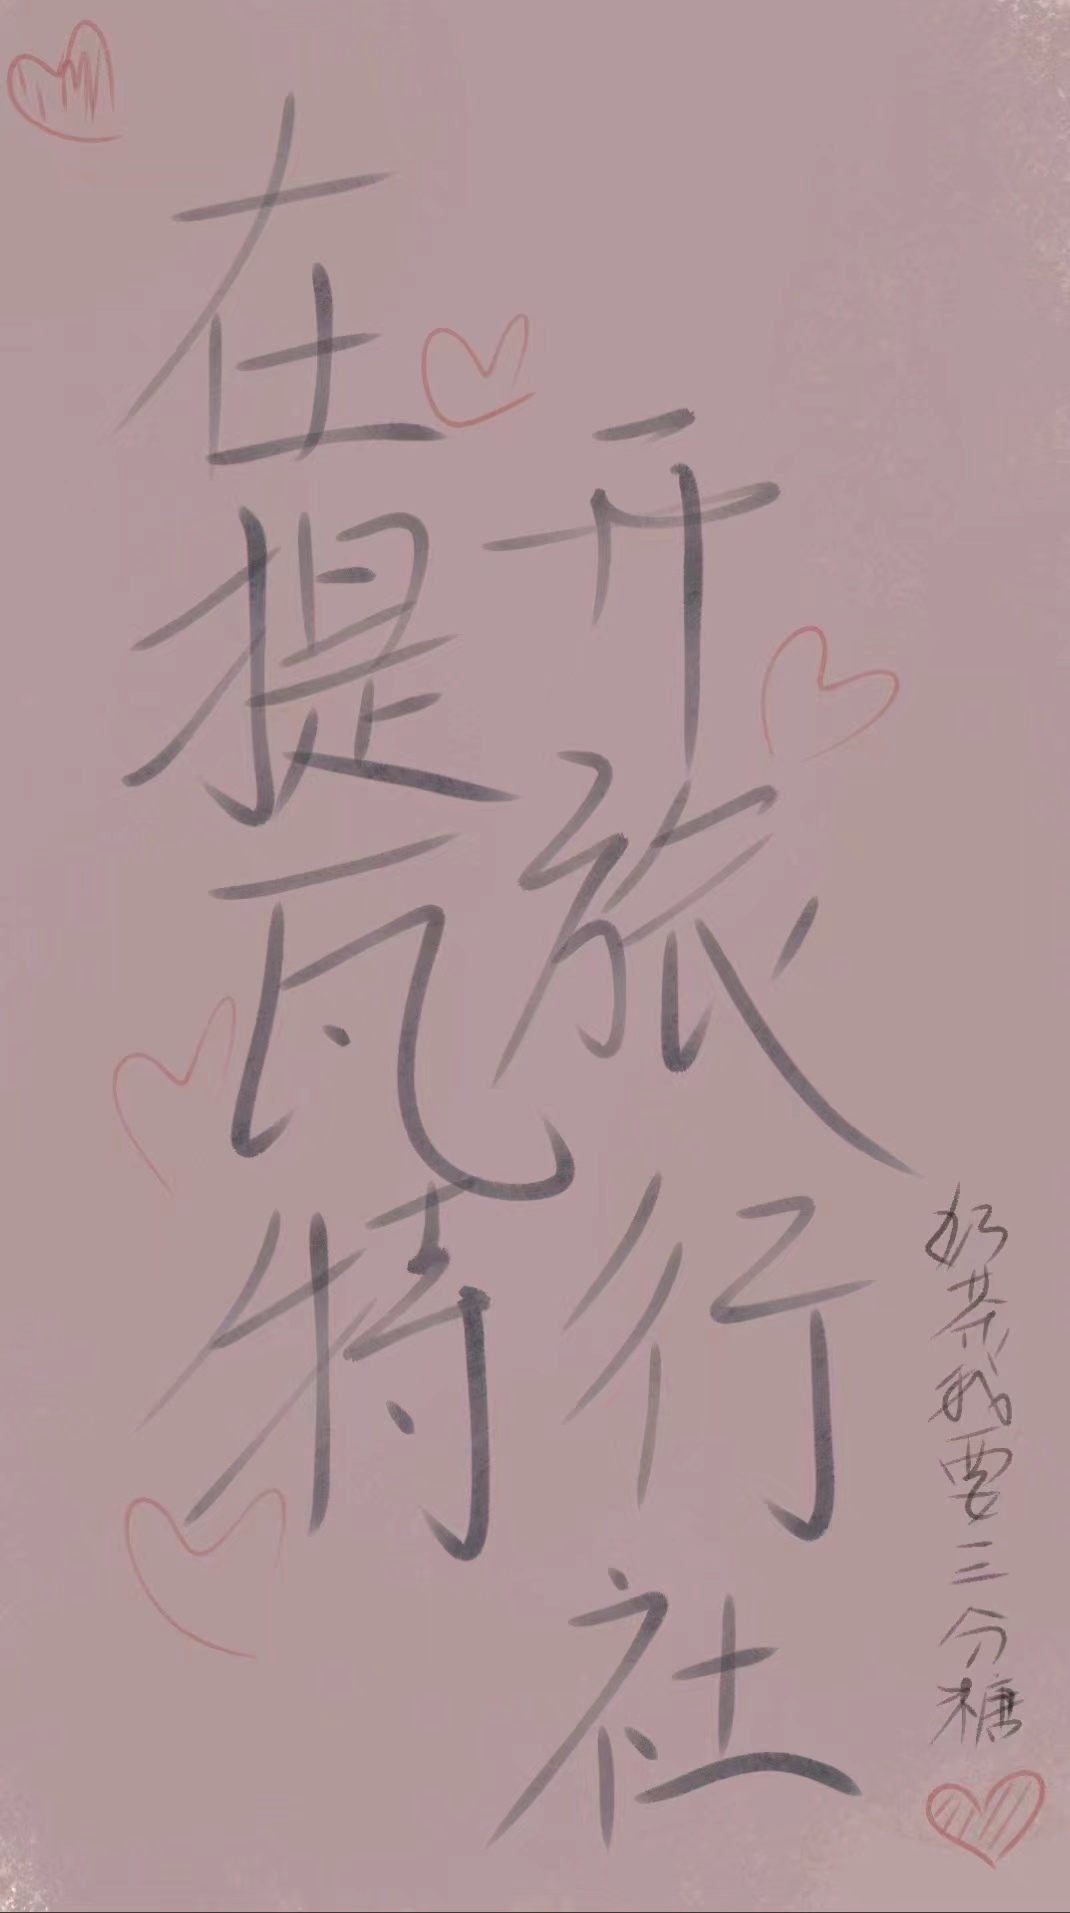 在提瓦特
开旅行社
奶茶我要三分糖